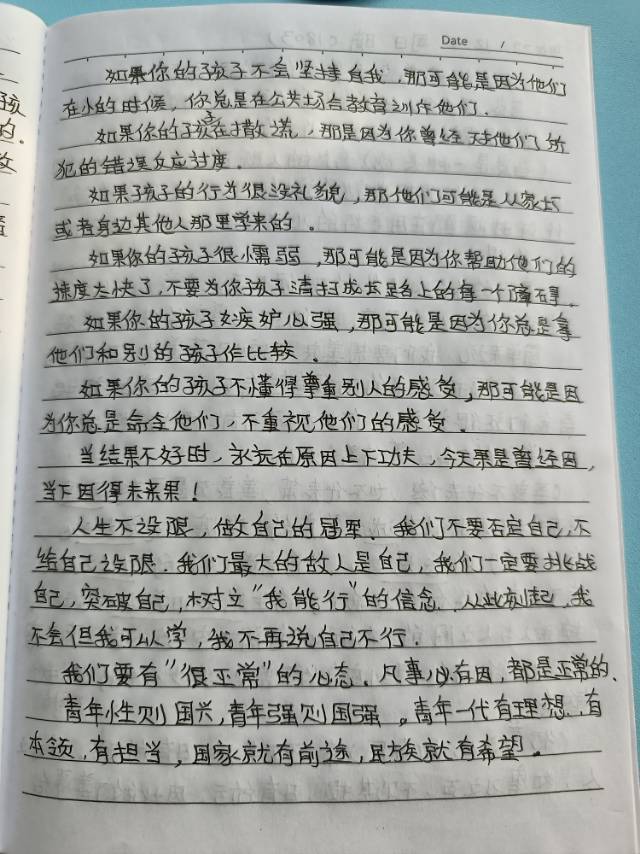 Date /
如果你的孩子不会坚持自我，那可能是因为他们
在小的时候，你总是在公共场合教育训斥他们．
如果你的孩在撒谎，那是因为你曾经对他们所
犯的错误反应过度．
如果孩子的行为很没礼貌，那他们可能是从家长
或者身边其他人那里学来的．
如果你的孩子很懦弱，那可能是因为你帮助他们的
速度太快了，不要为你孩子清扫成长路上的每一个障碍．
如果你的孩子妒嫉心强，那可能是因为你总是拿
他们和别的孩子作比较．
如果你的孩子不懂得尊重别人的感觉，那可能是因
为你总是命令他们，不重视他们的感觉．
当结果不好时，永远在原因上下功夫，今天果是曾经因，
当下因得未来果！
人生不设限，做自己的冠军．我们不要否定自己，不
给自己设限．我们最大的敌人是自己，我们一定要挑战
自己，突破自己，树立“我能行”的信念．从此刻起，我
不会但我可以学，我不再说自己不行．
我们要有“很正常”的心态．凡事必有因，都是正常的．
青年性则国兴，青年强则国强。青年一代有理想，有
本领，有担当，国家就有前途，民族就有希望。